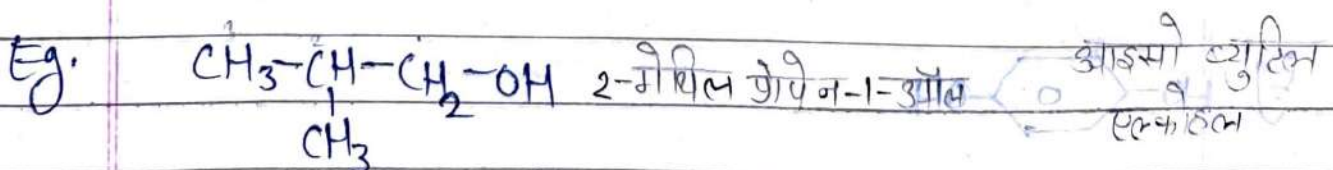 Eg. CH3-CH-CH2-OH 2-मेथिल प्रोपेन-1-ऑल आइसो ब्युटिल
CH3 एल्कोहल